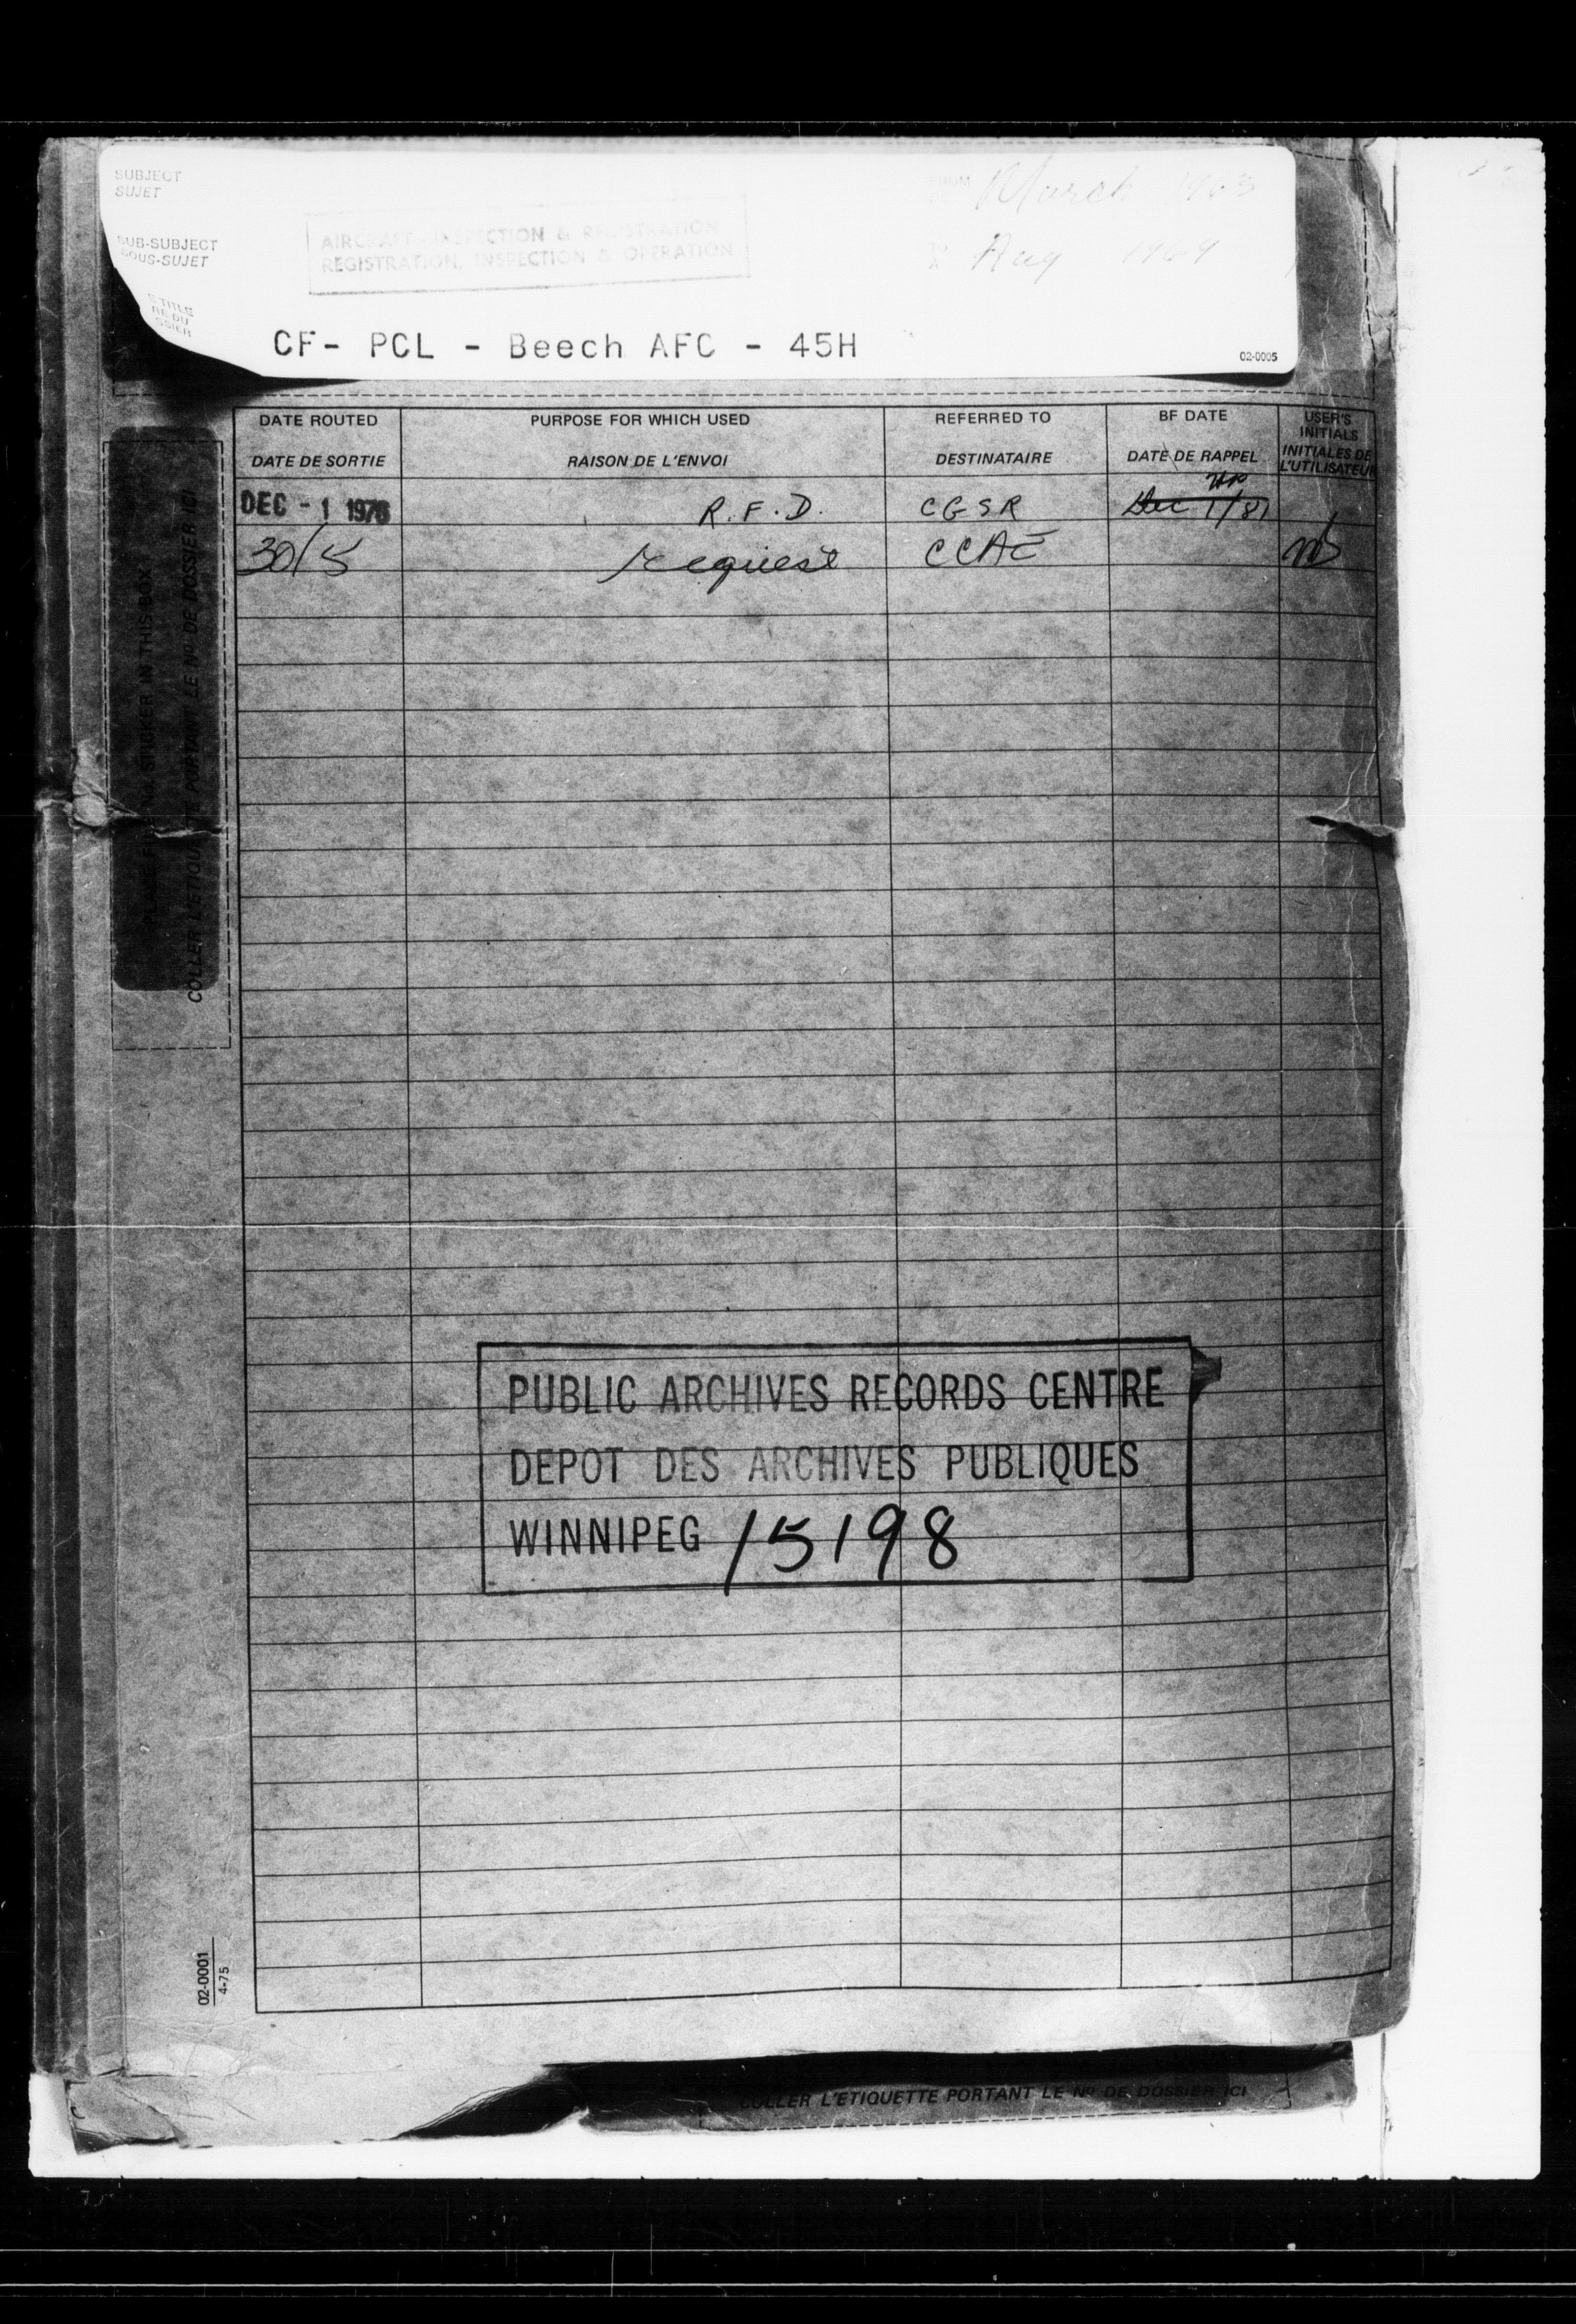 SUBJECT
SUJET
FROM March 1963
AIRCRAFT - INSPECTION & REGISTRATION
REGISTRATION, INSPECTION & OPERATION
SUB-SUBJECT
SOUS-SUJET
TO
Aug 1964
CF- PCL - Beech AFC - 45H
02-0005
DATE ROUTED PURPOSE FOR WHICH USED REFERRED TO BF DATE USER'S INITIALS
DATE DE SORTIE RAISON DE L'ENVOI DESTINATAIRE DATE DE RAPPEL INITIALES DE L'UTILISATEUR
DEC - 1 1976 R.F.D. CGSR Dec 1/81
30/5 request CCAE
PLACE FILE No. STICKER IN THIS BOX
COLLER L'ETIQUETTE PORTANT LE Nº DE DOSSIER ICI
PUBLIC ARCHIVES RECORDS CENTRE
DEPOT DES ARCHIVES PUBLIQUES
WINNIPEG 15198
02-0001
4-75
COLLER L'ETIQUETTE PORTANT LE Nº DE DOSSIER ICI